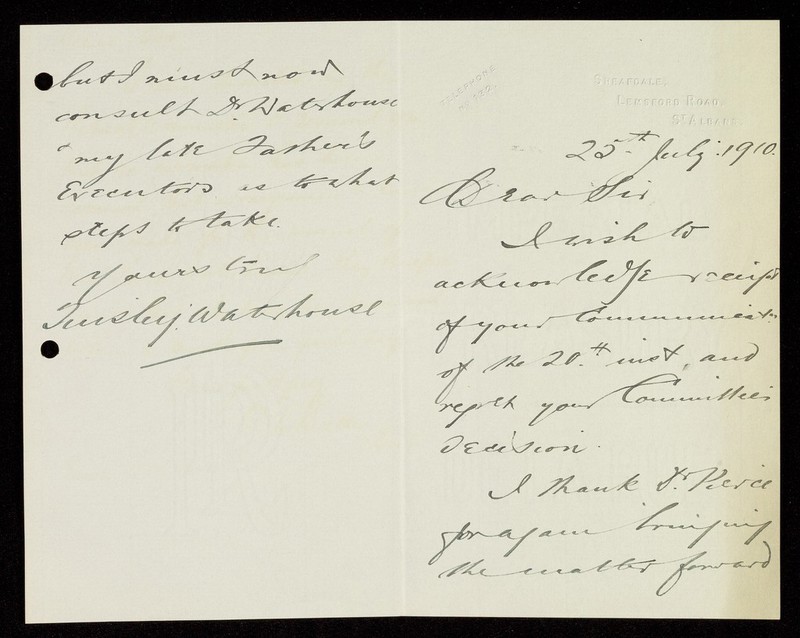 TELEPHONE
SHEARDALE,
LEMSFORD ROAD,
ST ALBANS.
25th July. 1910.
Dear Sir
I wish to
acknowledge receipt
of your Communicatn
of the 20th. inst, and
regret your Committee's
decision.
I thank Dr Pierce
for again bringing
the matter forward
but I must now
consult Dr. Waterhouse
& my late Father's
Executors as to what
steps to take.
Yours truly
Tinsley. Waterhouse